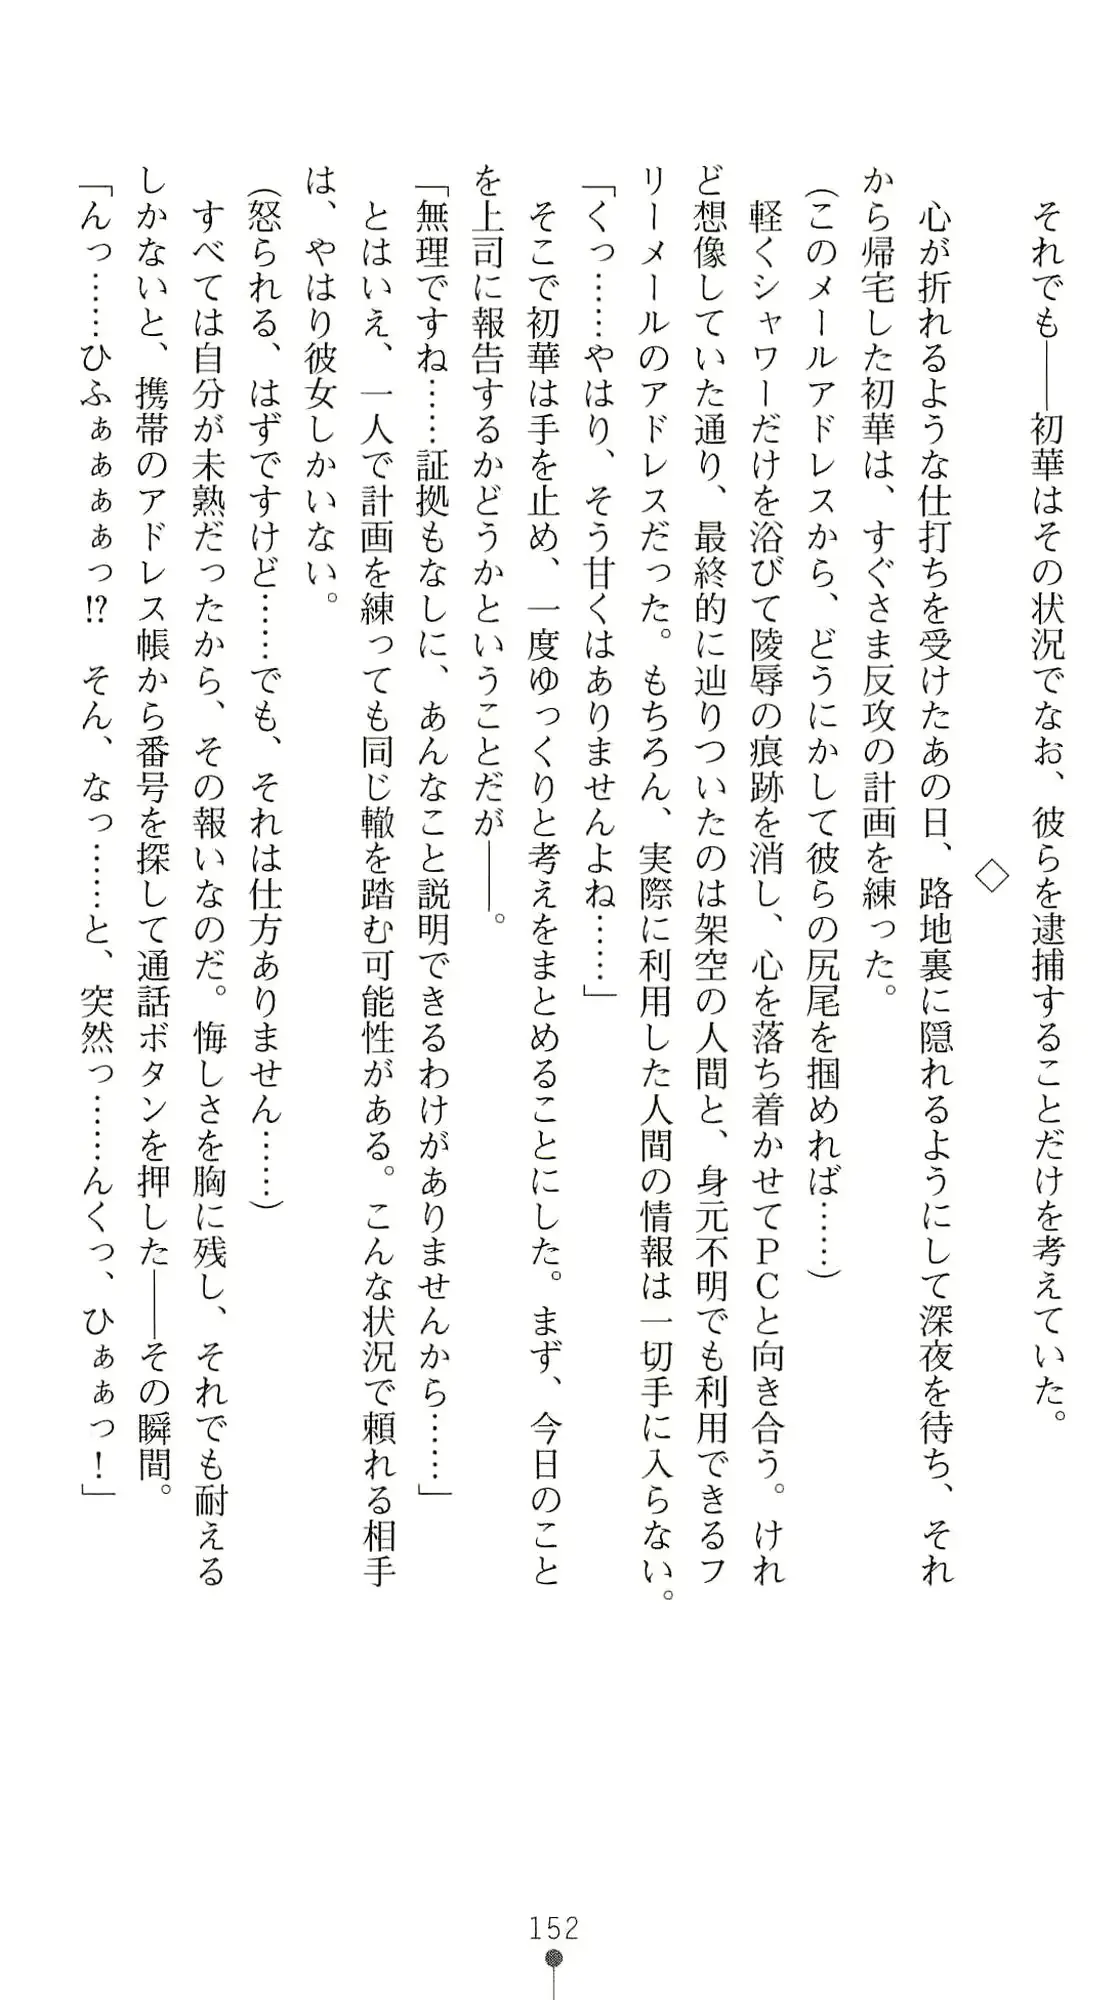 それでも――初華はその状況でなお、彼らを逮捕することだけを考えていた。
◇
心が折れるような仕打ちを受けたあの日、路地裏に隠れるようにして深夜を待ち、それ
から帰宅した初華は、すぐさま反攻の計画を練った。
(このメールアドレスから、どうにかして彼らの尻尾を掴めれば……)
軽くシャワーだけを浴びて陵辱の痕跡を消し、心を落ち着かせてＰＣと向き合う。けれ
ど想像していた通り、最終的に辿りついたのは架空の人間と、身元不明でも利用できるフ
リーメールのアドレスだった。もちろん、実際に利用した人間の情報は一切手に入らない。
「くっ……やはり、そう甘くはありませんよね……」
そこで初華は手を止め、一度ゆっくりと考えをまとめることにした。まず、今日のこと
を上司に報告するかどうかということだが――。
「無理ですね……証拠もなしに、あんなこと説明できるわけがありませんから……」
とはいえ、一人で計画を練っても同じ轍を踏む可能性がある。こんな状況で頼れる相手
は、やはり彼女しかいない。
(怒られる、はずですけど……でも、それは仕方ありません……)
すべては自分が未熟だったから、その報いなのだ。悔しさを胸に残し、それでも耐える
しかないと、携帯のアドレス帳から番号を探して通話ボタンを押した――その瞬間。
「んっ……ひふぁぁぁぁっ!?　そん、なっ……と、突然っ……んくっ、ひぁぁっ！」
152